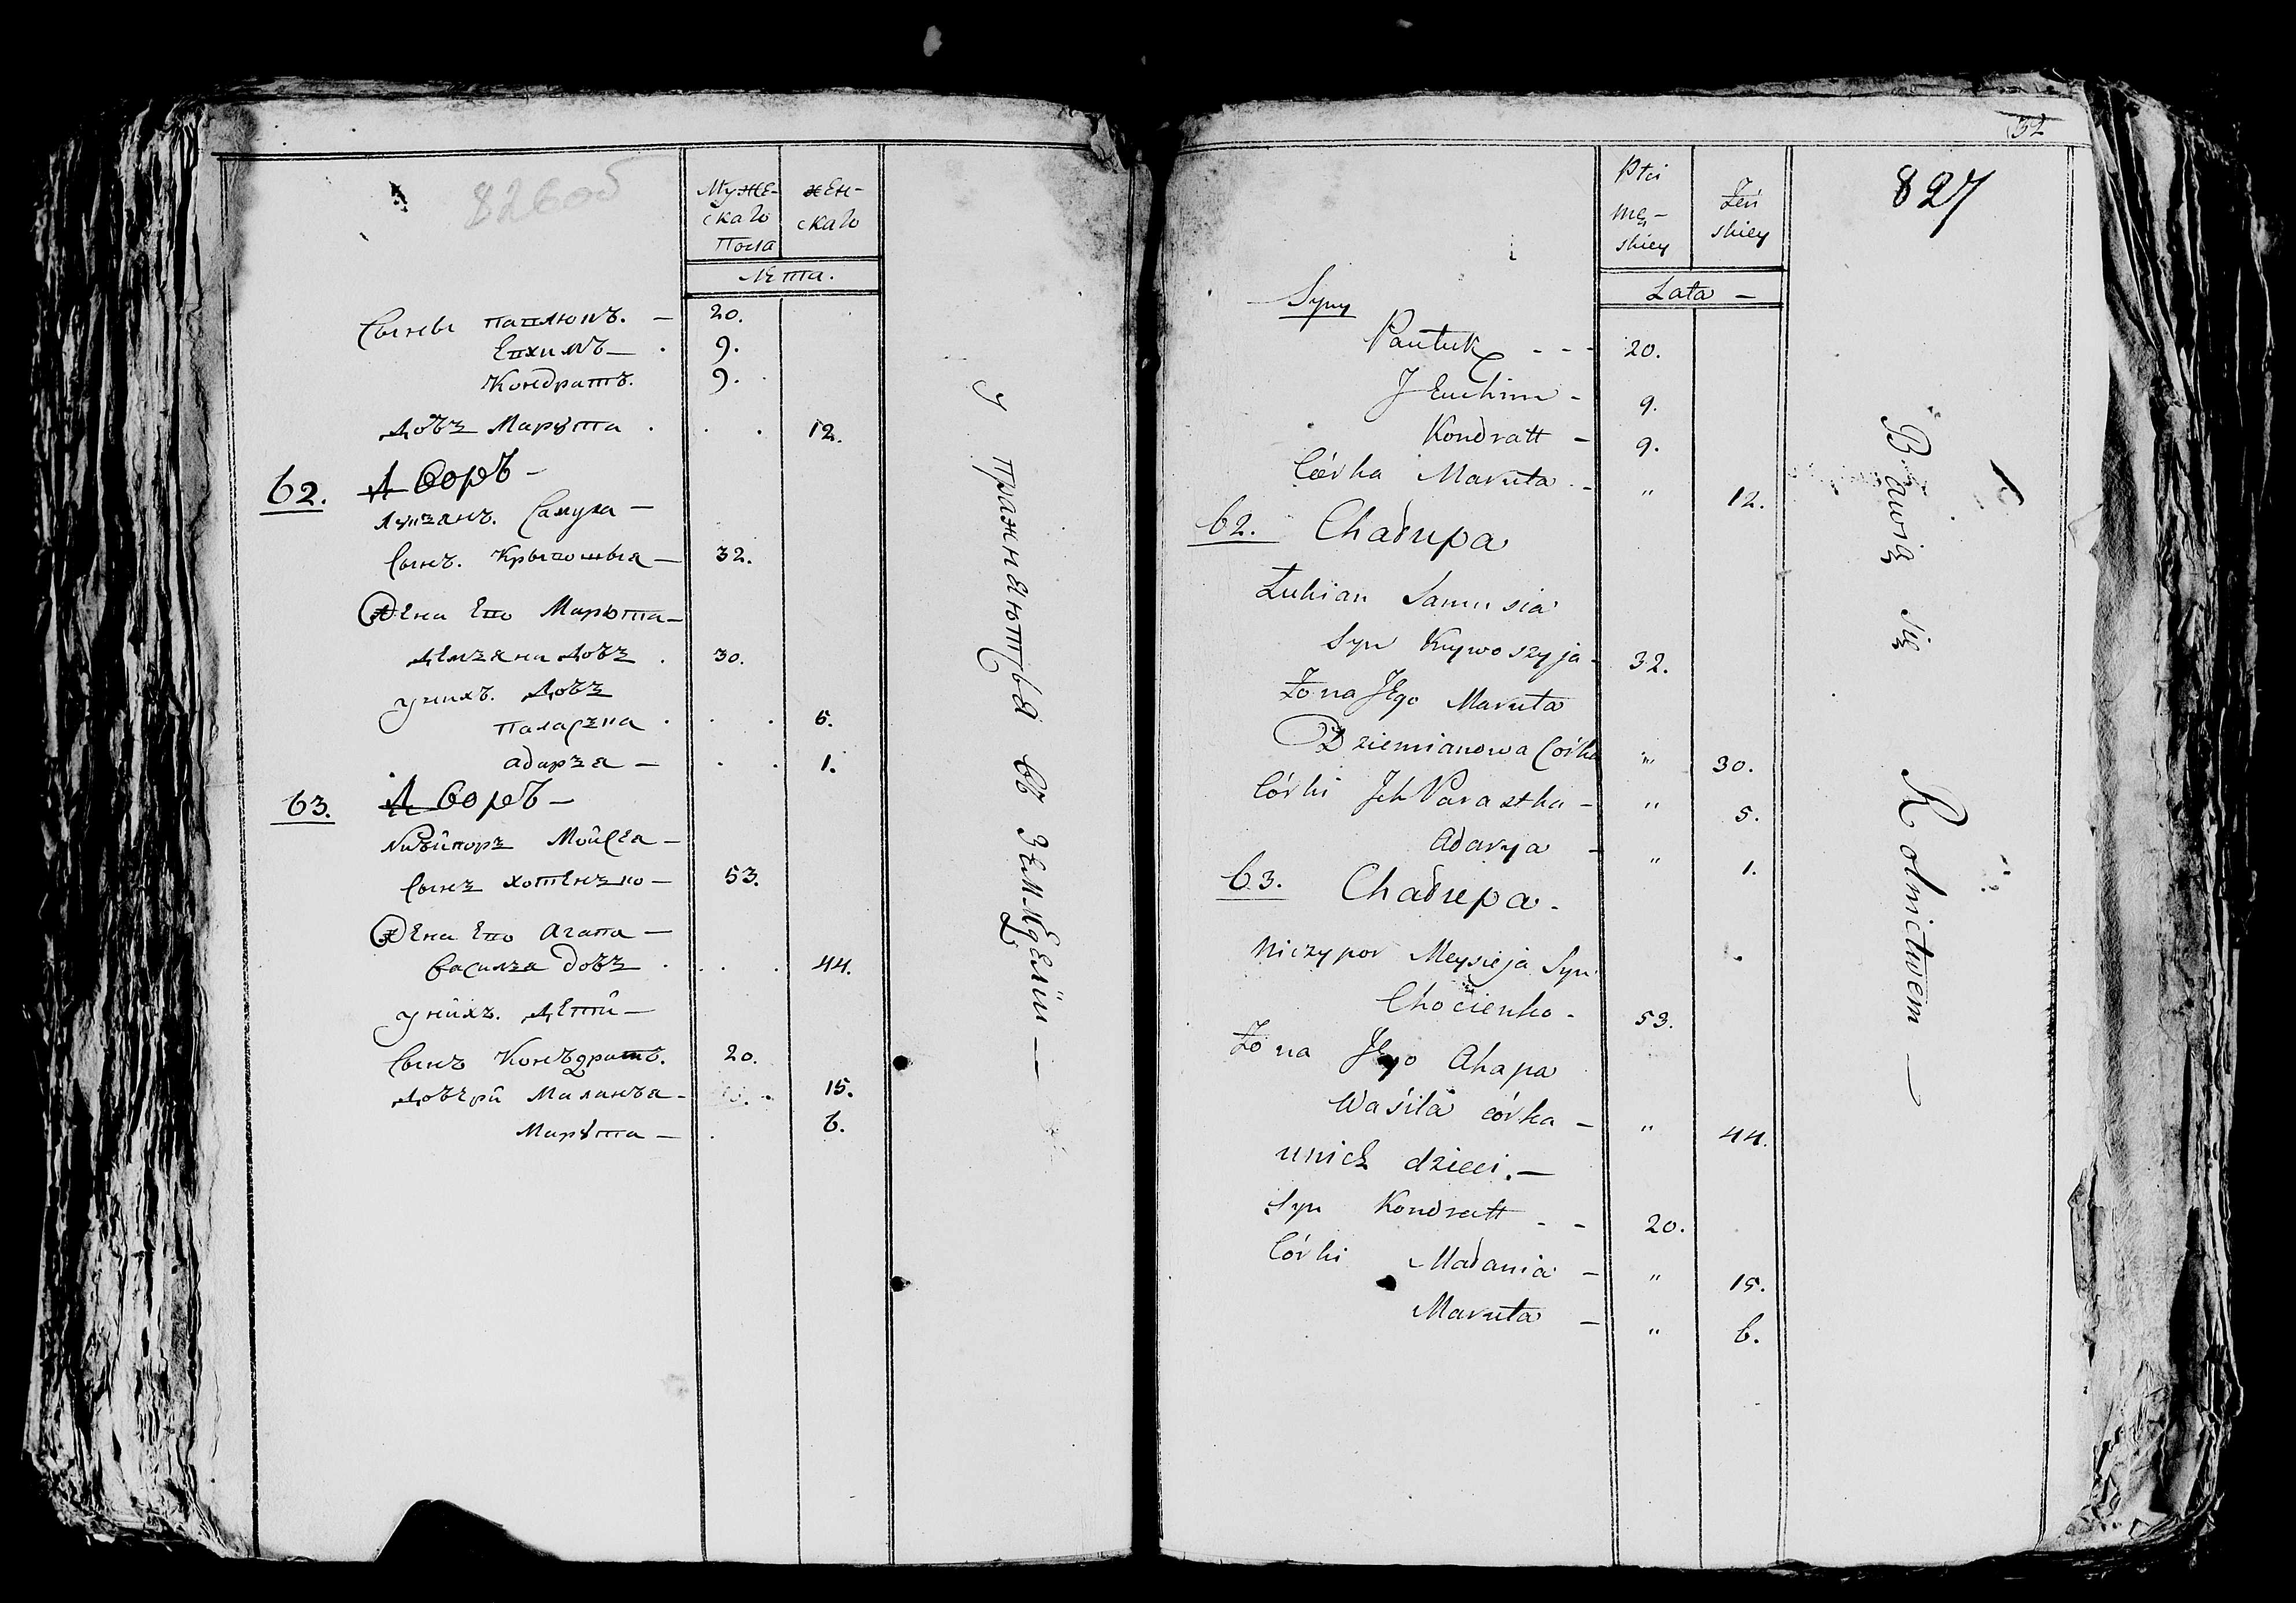 826об
Муже-
скаго
Пола
жен-
скаго
Лета.
Сыны павлюкъ. — 20.
Евхимъ — . 9.
Кондратъ. 9.
Довъ Марута . . . 12.
62. Дворъ —
Лукъянъ. Самуся —
Сынъ. Крывошыя — 32.
Жена Его Марута —
Демъяна Довъ . 30.
Унихъ. Довъ
Парасъка . . . 5.
адаръя — . . 1.
63. Дворъ —
Ничипоръ Мойсея —
Сынъ хотенъко — 53.
Жена Его Агапа —
Василя довъ . . . . 44.
Унихъ. Дети —
Сынъ Конъдратъ. 20.
Довчри Маланъя — 15.
Марута — . 6.
Упражняются въ Земледелии —
32
827
Ptci
mę-
skiey
Żeń
skiey
Lata —
Syny
Pautuk - - - 20.
JEuchim - 9.
Kondratt - 9.
Córka Maruta - " 12.
62. Chałupa
Łukian Samusia
Syn Krywoszyja - 32.
Żona JEgo Maruta
Dziemianowa Córka " 30.
Córki Jch Parastka - " 5.
Adarya - " 1.
63. Chałupa -
Niczypor Meysieja Syn
Chocienko - 53.
Żona JEgo Ahapa
Wasila córka - " 44.
unich dzieci. —
Syn Kondratt - - 20.
Córki Małania - " 15.
Maruta - " 6.
Bawią się Rolnictwem —